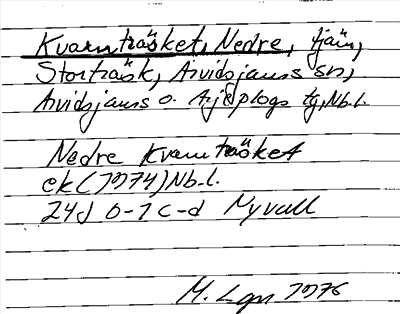 Kvarnträsket, Nedre, tjärn,
Storträsk, Arvidsjaurs sn,
Arvidsjaurs o. Arjeplogs tg, Nb.l.
Nedre Kvarnträsket
ek (1974) Nb.l.
24J 0-1 c-d Myvall
M. Lgn 1976